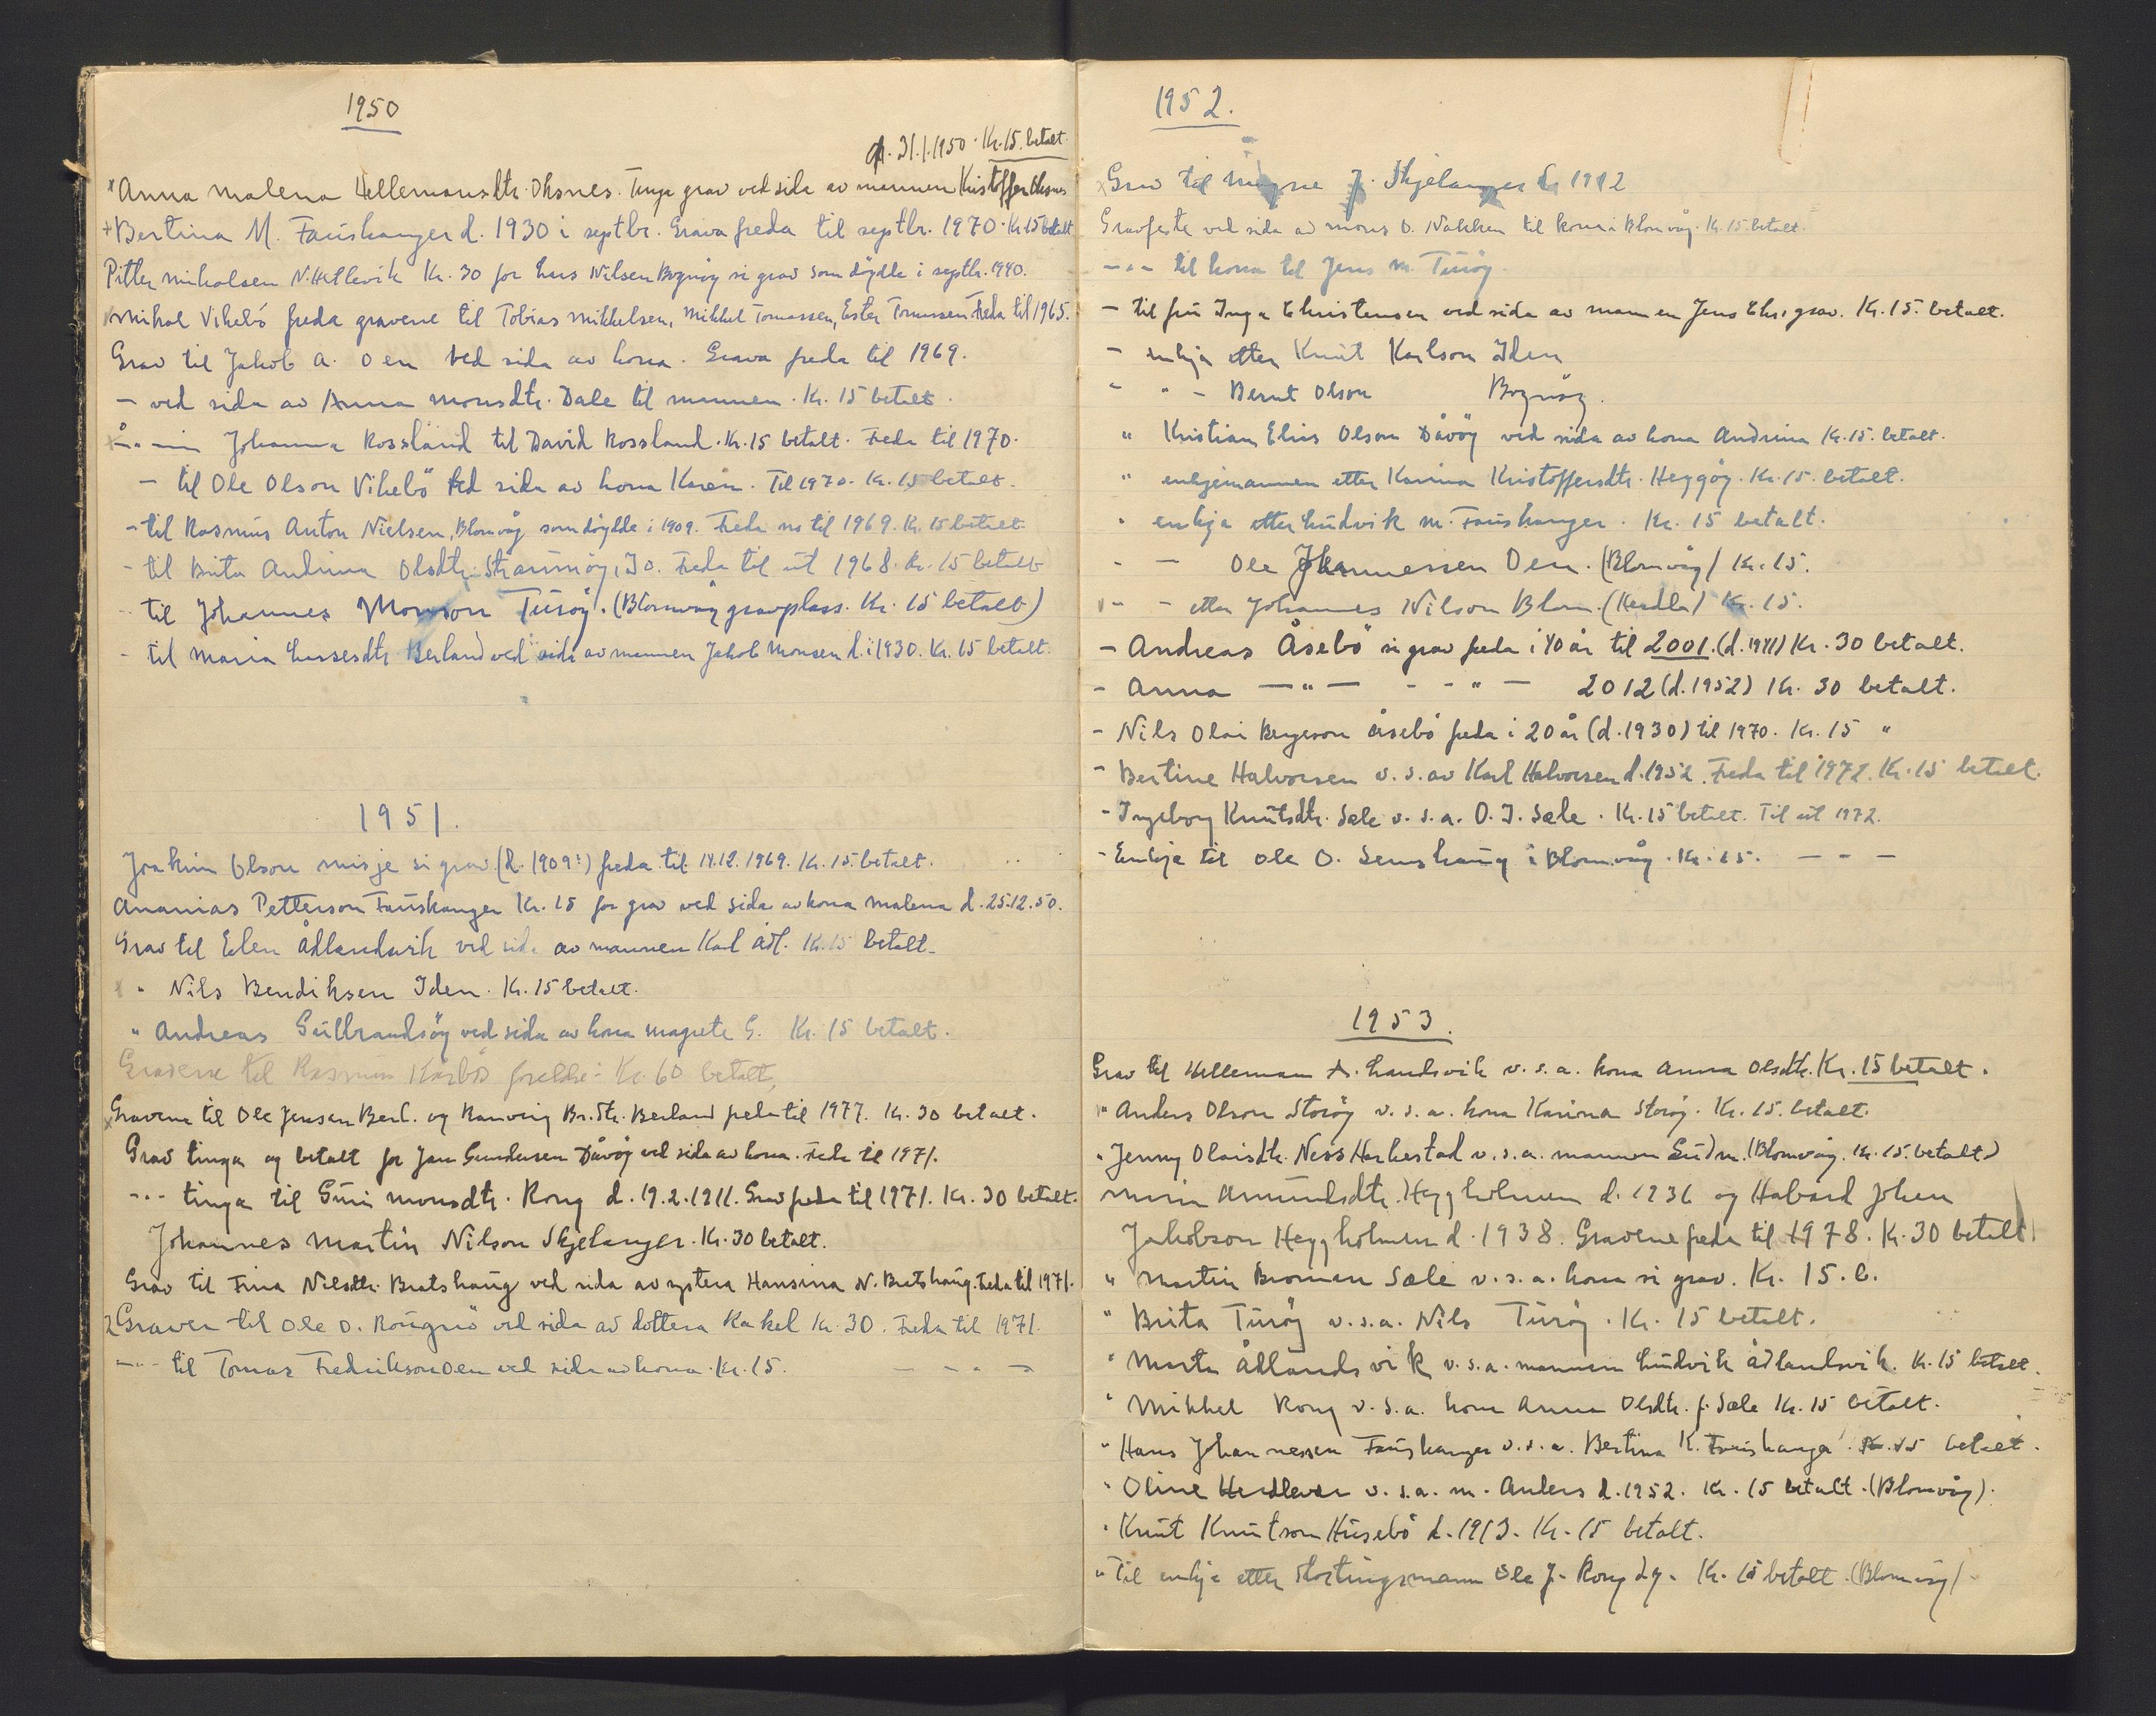 1950
31.1.1950. Kr. 15. betalt.
Anna Malena Hellemansdtr. Oksnes. Tinga grav ved sida av mannen Kristoffer Oksnes
Bertina M. Fauskanger d. 1930 i septbr. Grava freda til septbr. 1970. Kr. 15 betalt
Pitter Mikalsen N. Hetlevik Kr. 30 for Lars Nilsen Bognøy si grav som døydde i septbr. 1940.
Mikal Vikebö freda gravene til Tobias Mikkelsen, Mikkel Tomassen, Ester Tomassen. Freda til 1965.
Grav til Jakob A. Oen ved sida av kona. Grava freda til 1969.
- ved sida av Anna Monsdtr. Dale til mannen. Kr. 15 betalt.
Johanna Rossland til David Rossland. Kr. 15 betalt. Freda til 1970.
- til Ole Olson Vikebö ved sida av kona Karen. Til 1970. Kr. 15 betalt.
- til Rasmus Anton Nielsen, Blomvåg som døydde i 1909. Freda no til 1969. Kr. 15 betalt
- til Brita Andrina Olsdtr. Straumøy, Freda til ut 1968. Kr. 15 betalt
- til Johannes Monson Turöy. (Blomvåg gravplass. Kr. 15 betalt)
- til Maria Lassesdtr. Berland ved sida av mannen Jakob Monsen d. i 1930. Kr. 15 betalt.
1951.
Joakim Olson Misje si grav (d. 1909?) freda til 14.12.1969. Kr. 15. betalt.
Ananias Petterson Fauskanger Kr. 15 for grav ved sida av kona Malena d. 25.12.50.
Grav til Elen Ådlandsvik ved sida av mannen Karl Ådl. Kr. 15 betalt.
" Nils Bendiksen Iden. Kr. 15 betalt.
" Andreas Gulbrandsöy ved sida av kona Magrete G. Kr. 15 betalt.
Gravene til Rasmus Kårbö foreldre. Kr. 60 betalt,
Gravene til Ole Jensen Berl. og Ranveig Br.dtr. Berland freda til 1977. Kr. 30 betalt.
Grav tinga og betalt for Jan Gundersen Dåvöy ved sida av kona. Freda til 1971.
-"- tinga til Guri Monsdtr. Rong d. 19.2.1911. Grav freda til 1971. Kr. 30 betalt.
Johannes Martin Nilson Skjelanger. Kr. 30 betalt.
Grav til Fina Nilsdtr. Bratshaug ved sida av systera Hansina N. Bratshaug. Freda til 1971.
2 Graver til Ole O. Rougnö ved sida av dottera Rakel Kr. 30. Freda til 1971.
-"- til Tomas Fredrikson Oen ved sida av kona. Kr. 15. - - - -
1952.
Grav til Magne J. Skjelanger d. 1912
Gravfeste ved sida av Mons O. Nakken til kona i Blomvåg. Kr. 15. betalt.
-"- til kona til Jens M. Turöy.
- til fru Inga Christensen ved sida av mannen Jens Chr. grav. Kr. 15. betalt.
- enkja etter Knut Karlson Iden
- " - Bernt Olson Bognøy.
" Kristian Elias Olson Dåvöy ved sida av kona Andrina Kr. 15. betalt.
" enkjemannen etter Karina Kristoffersdtr. Heggöy. Kr. 15. betalt.
" enkja etter Ludvik M. Fauskanger. Kr. 15 betalt.
- - Ole Johannessen Oen. (Blomvåg) Kr. 15.
- - etter Johannes Nilson Blom. (Herdla) Kr. 15.
- Andreas Åsebö si grav freda i 40 år til 2001. (d. 1941) Kr. 30 betalt.
- Anna -"- - -"- 2012 (d. 1952) Kr. 30 betalt.
- Nils Olai Bergeson Åsebö freda i 20 år (d. 1930) til 1970. Kr. 15 "
- Bertine Halvorsen v. s. av Karl Halvorsen d. 1952. Freda til 1972. Kr. 15 betalt.
- Ingeborg Knutsdtr. Sæle v. s. a. O. J. Sæle. Kr. 15 betalt. Til ut 1972.
- Enkja til Ole O. Lemshaug i Blomvåg. Kr. 15. - - -
1953.
Grav til Helleman A. Landsvik v. s. a. kona Anna Olsdtr. Kr. 15 betalt.
" Anders Olson Storöy v. s. a. kona Karina Storöy. Kr. 15. betalt.
" Jenny Olaisdtr. Ness Harkestad v. s. a. mannen Gudm. (Blomvåg. Kr. 15. betalt)
Amundsdtr. Heggholmen d. 1936 og Halvard Johan
Jakobson Heggholmen d. 1938. Gravene freda til 1978. Kr. 30 betalt
" Martin Sæle v. s. a. kona si grav. Kr. 15. b.
" Brita Turöy v. s. a. Nils Turöy. Kr. 15 betalt.
" Marta Ådlandsvik v. s. a. mannen Ludvik Ådlandsvik. Kr. 15 betalt.
" Mikkel Rong v. s. a. kona Anna Olsdtr. f. Sæle Kr. 15 betalt.
" Hans Johannessen Fauskanger v. s. a. Bertina K. Fauskanger. Kr. 15 betalt.
" Oline Herdlevær v. s. a. m. Anders d. 1952. Kr. 15 betalt. (Blomvåg).
" Knut Knutson Husebö d. 1913. Kr. 15 betalt.
" Til enkja etter stortingsmann Ole J. Rong d.y. Kr. 15 betalt. (Blomvåg)